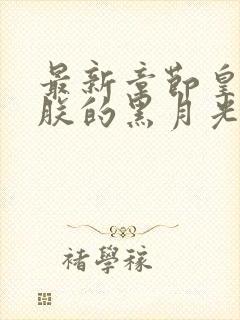 最新章節皇
朕的黑月光
褚學稼